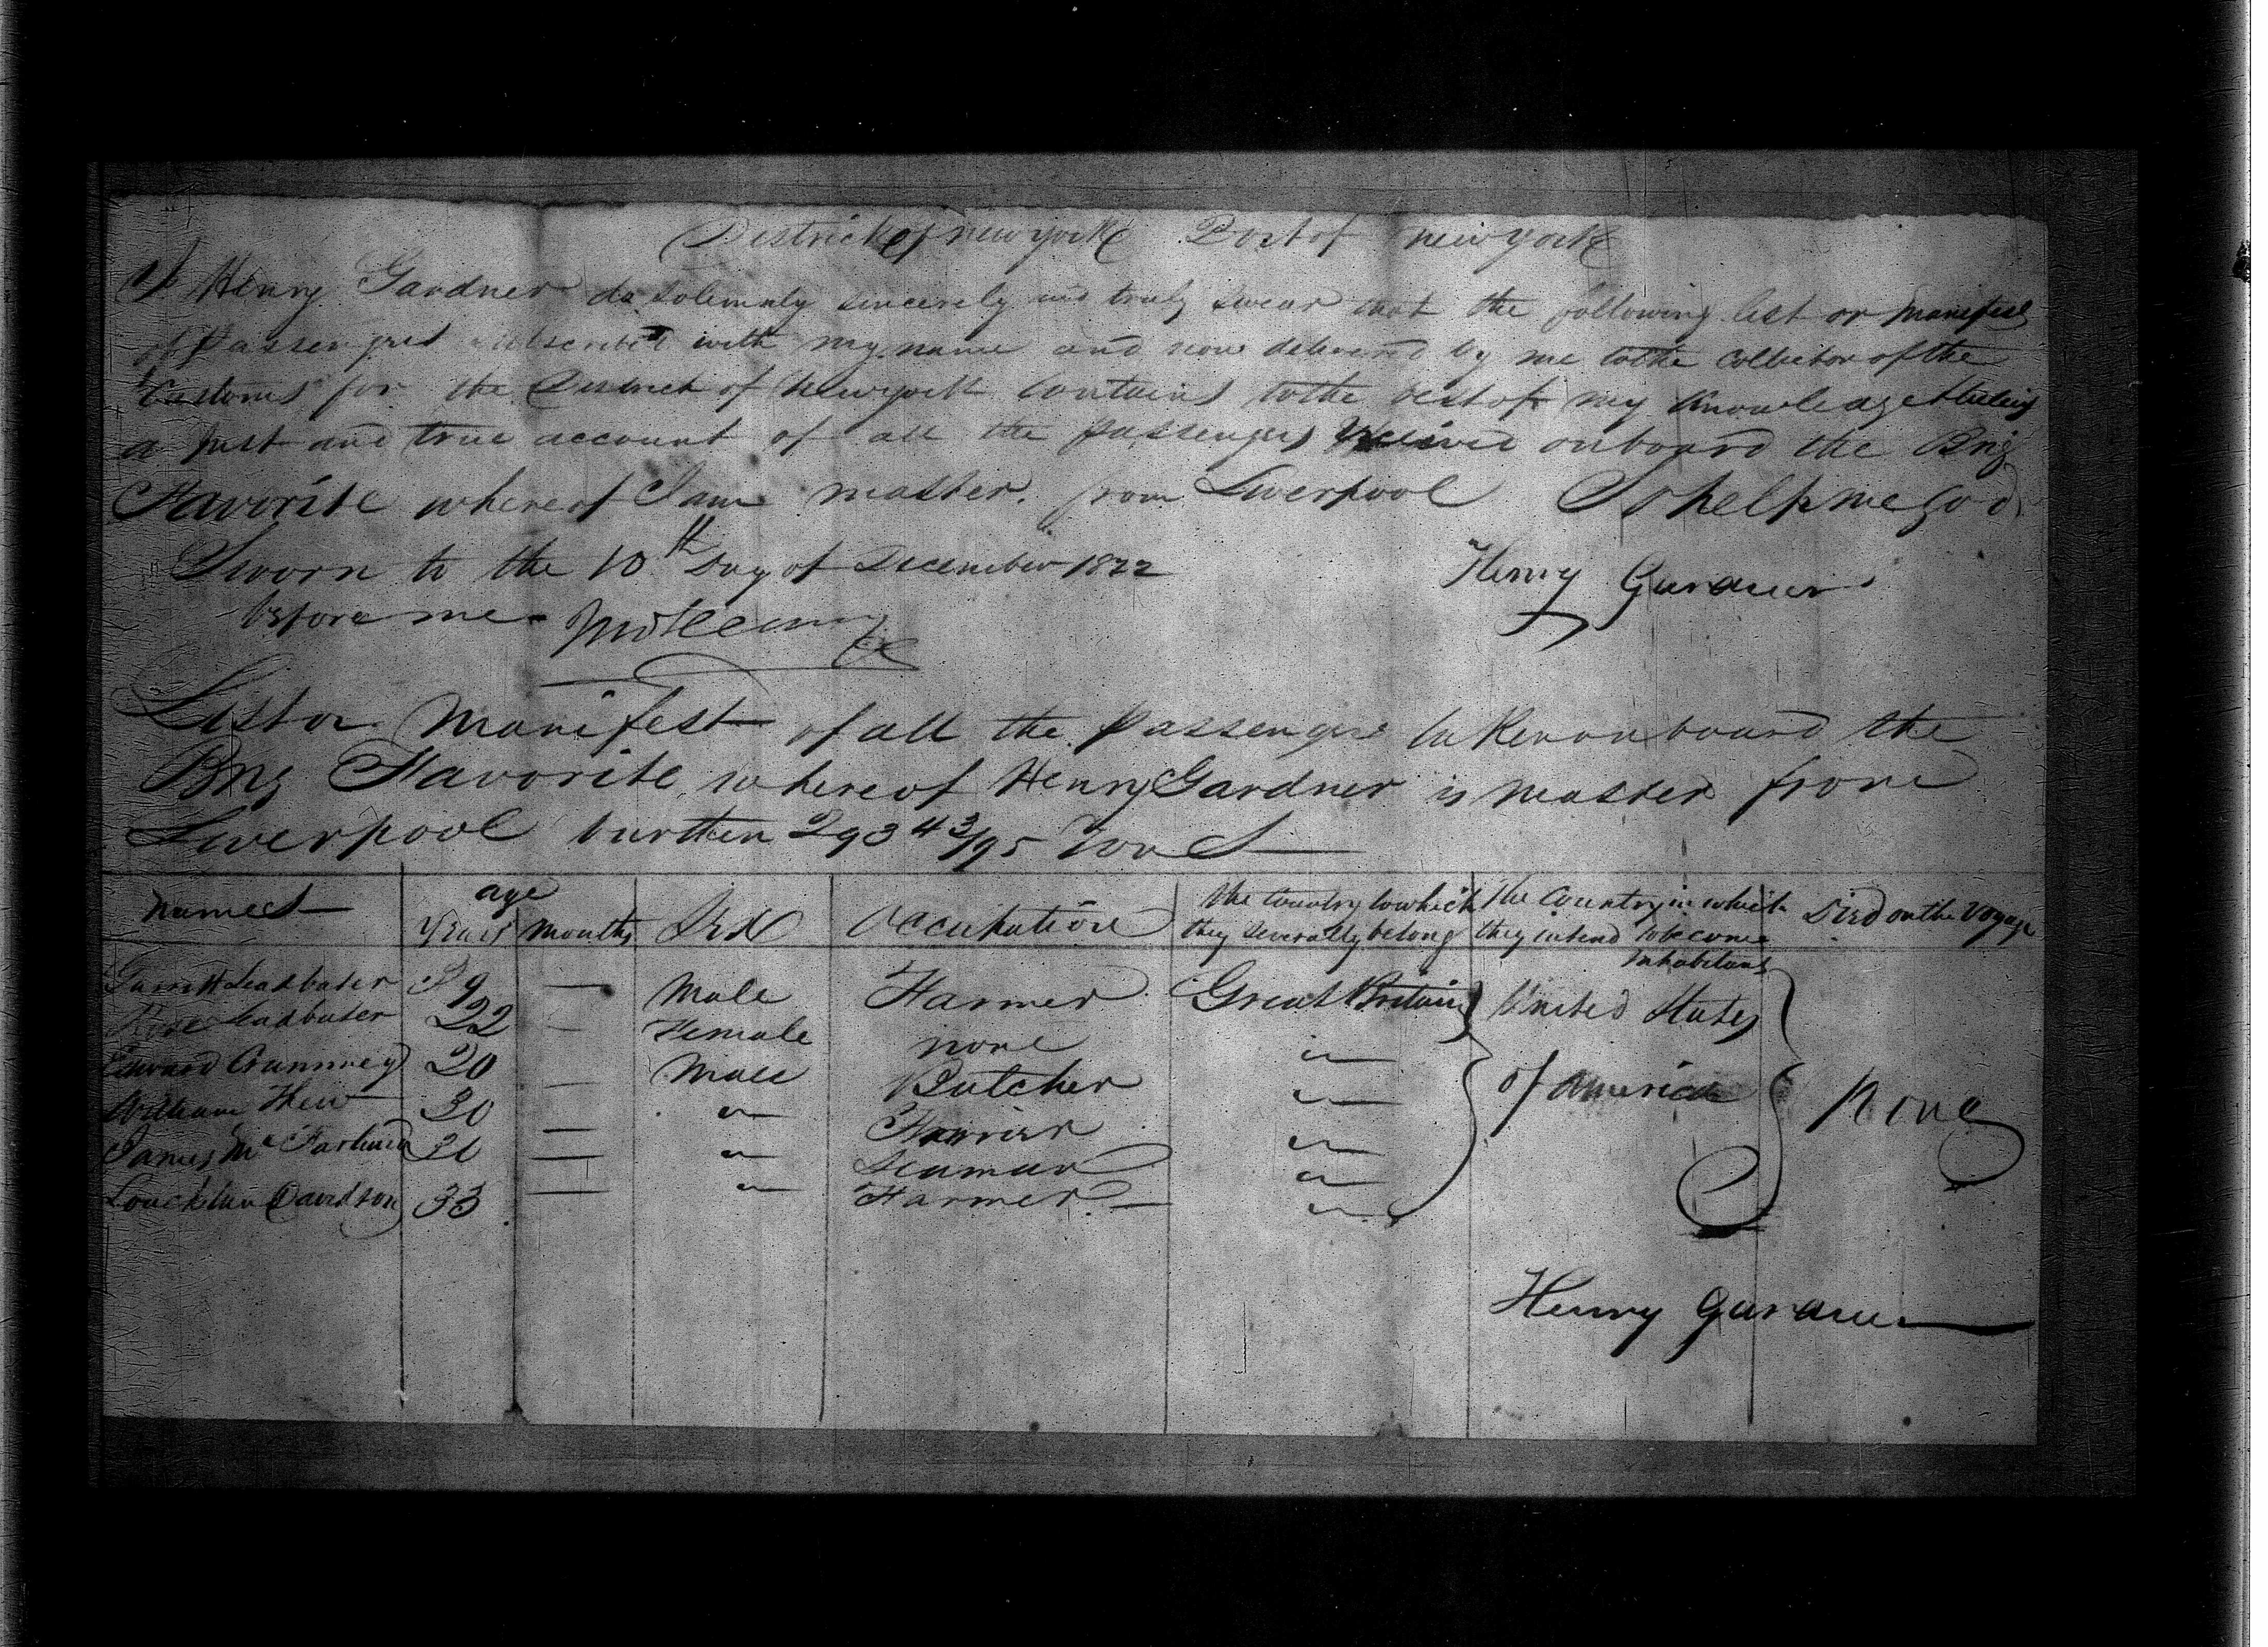 District of new york Port of new york
I Henry Gardner do solemnly sincerely and truly swear that the following list or manifest
of Passengers subscribed with my name and now delivered by me to the Collector of the
Customs for the District of Newyork Contains to the best of my Knowledge &
a just and true account of all the passengers Received onboard the Brig
Favorite whereof I am master from Liverpool So help me God
Sworn to the 10th Day of December 1822 Henry Gardner
before me
List or Manifest of all the Passengers taken onboard the
Brig Favorite whereof Henry Gardner is master from
Liverpool burthen 293 43/95 Tons
names age Years months Sex Occupation the Country to which they severally belong the Country in which they intend to become Inhabitants Died on the Voyage
Leadbater Male Farmer Great Britain United States
Rose Leadbater 22 — Female none "
Edward 20 Male Butcher " of America None
William 30 — "
James Mc Farland — " Seaman "
Davidson 33 — " Farmer "
Henry Gardner